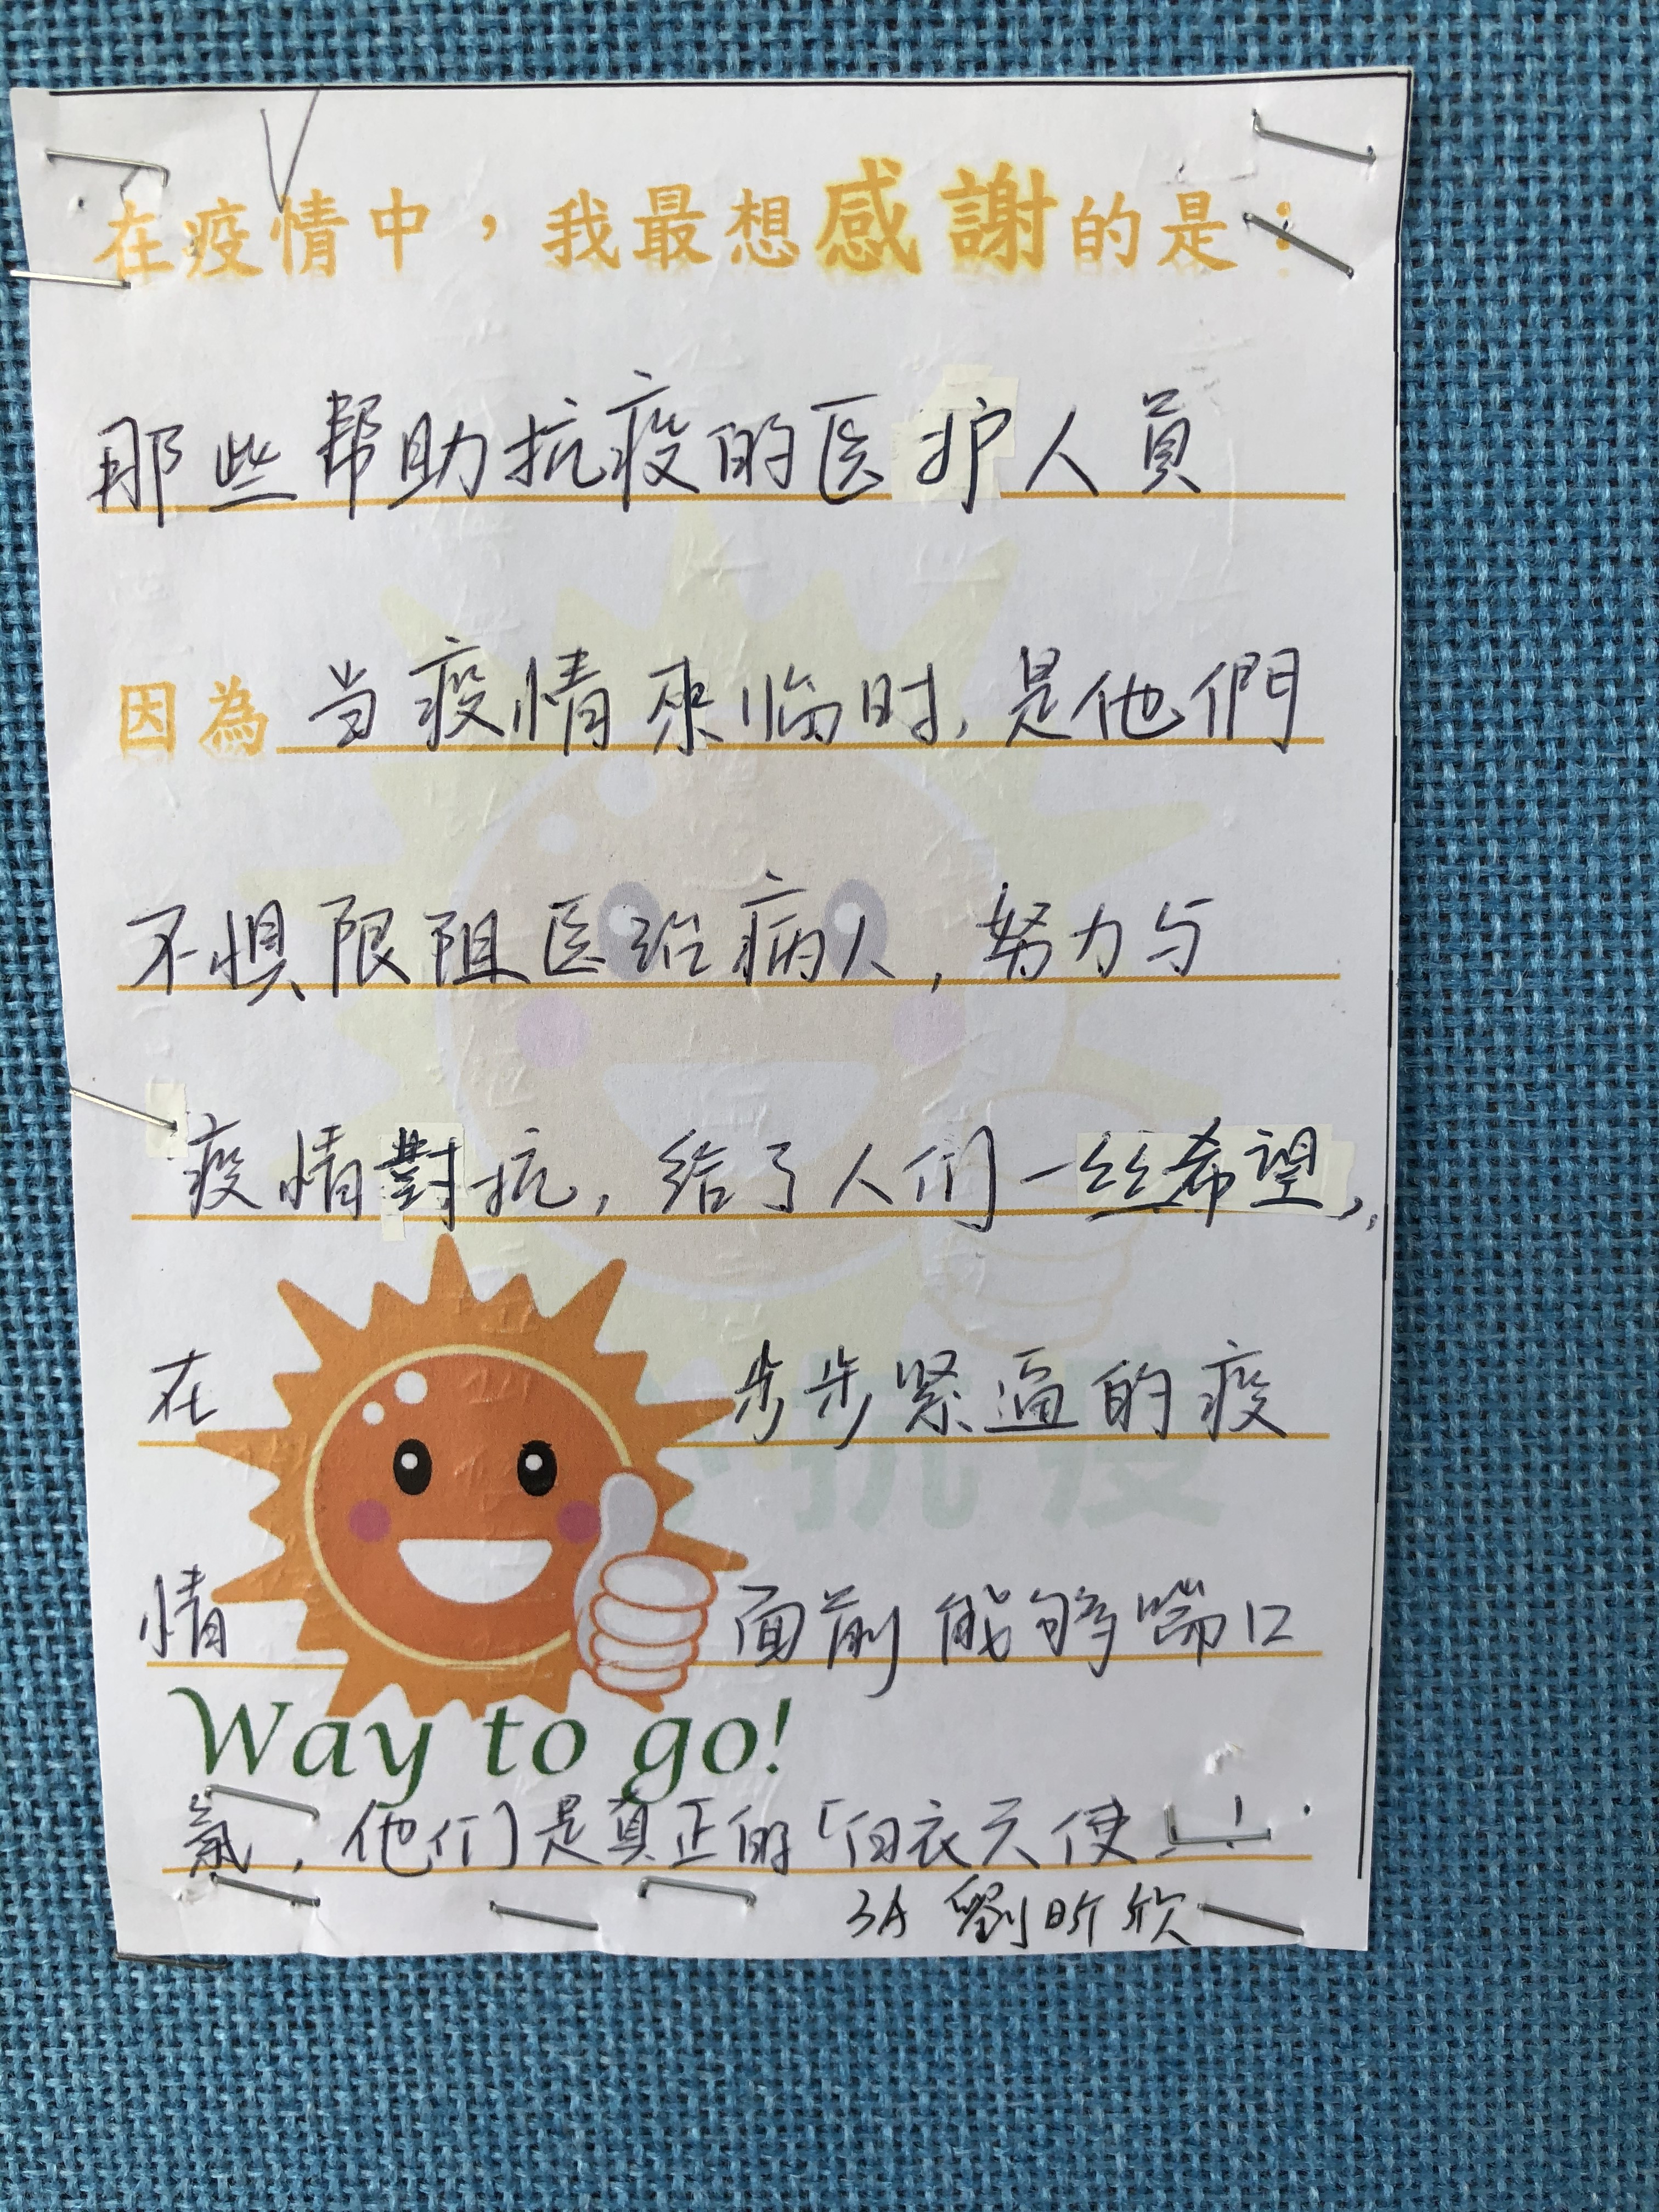 在疫情中，我最想感謝的是：
那些帮助抗疫的医护人員
因為当疫情來临时，是他們
不惧限阻医治病人，努力与
疫情對抗，给了人们一丝希望，
在步步紧逼的疫
抗疫
情面前能够喘口
Way to go!
氣，他们是真正的「白衣天使」！
3A 劉昕欣